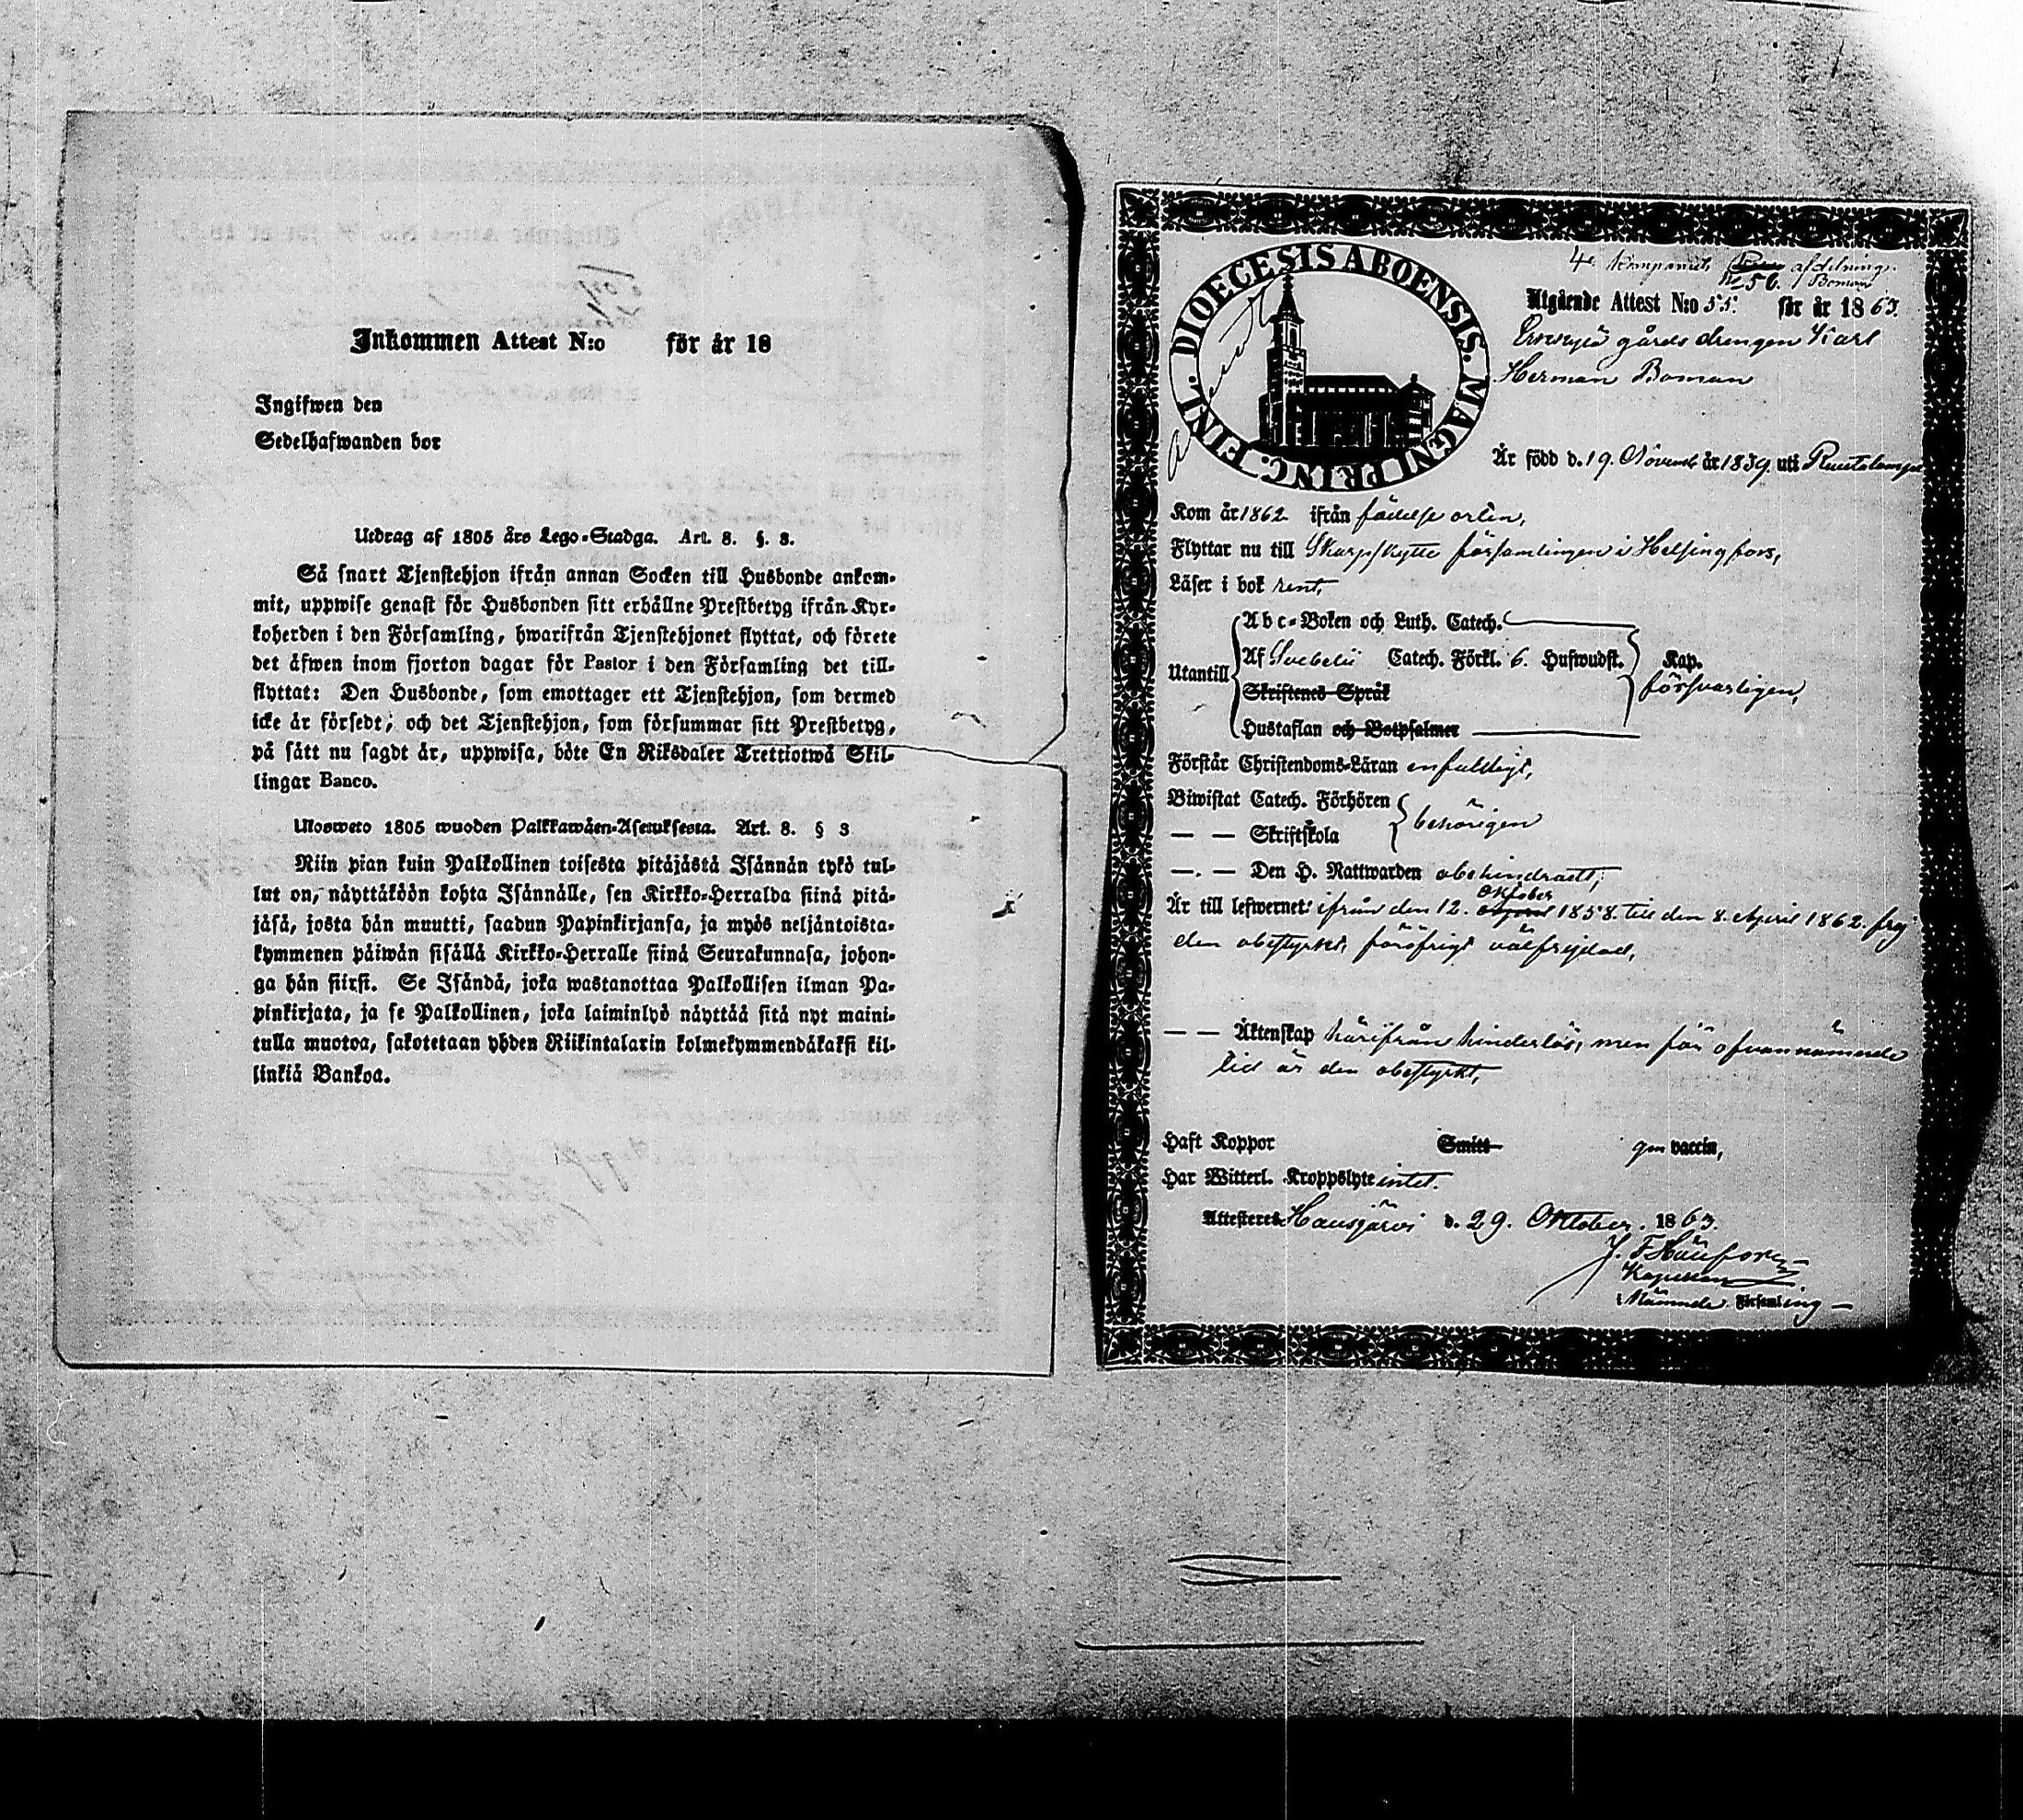 Inkommen Attest N:o för år 18
Ingifwen den
Sedelhafwanden bor
Utdrag af 1805 års Lego-Stadga. Art. 8. §. 3.
Så snart Tjenstehjon ifrån annan Socken till Husbonde ankom-
mit, uppwise genast för Husbonden sitt erhållne Prestbetyg ifrån Kyr-
koherden i den Församling, hwarifrån Tjenstehjonet flyttat, och förete
det åfwen inom fjorton dagar för Pastor i den Församling det till-
flyttat: Den Husbonde, som emottager ett Tjenstehjon, som dermed
icke är försedt; och det Tjenstehjon, som försummar sitt Prestbetyg,
på sätt nu sagdt är, uppwisa, böte En Riksdaler Trettiotwå Skil-
lingar Banco.
Ulosweto 1805 wuoden Palkkawäen-Asetuksesta. Art. 8. § 3
Niin pian kuin Palkollinen toisesta pitäjästä Isännän tykö tul-
lut on, näyttäköön kohta Isännälle, sen Kirkko-Herralda siinä pitä-
jäsä, josta hän muutti, saadun Papinkirjansa, ja myös neljäntoista-
kymmenen päiwän sisällä Kirkko-Herralle siinä Seurakunnasa, johon-
ga hän siirst. Se Isändä, joka wastanottaa Palkollisen ilman Pa-
pinkirjata, ja se Palkollinen, joka laiminlyö näyttää sitä nyt maini-
tulla muotoa, sakotetaan yhden Riikintalarin kolmekymmendäkaksi kil-
linkiä Bankoa.
DIOECESIS ABOENSIS. MAGNI PRINC. FINL.
4e kompaniets afdelning
N:o 56. / Boman
Utgående Attest N:o 55. för år 1863.
gårds drengen Karl
Herman Boman
Är född d. 19. Novemb år 1839. uti
Kom år 1862 ifrån födelse orten,
Flyttar nu till Skarpskytte församlingen i Helsingfors,
Läser i bok rent,
Utantill
Abc-Boken och Luth. Catech.
Af Svebelii Catech. Förkl. 6. Hufwudst. Kap.
försvarligen,
Skriftenes Språk
Hustaflan och Botpsalmer
Förstår Christendoms-Läran enfaldigt,
Biwistat Catech. Förhören
behörigen
— — Skriftskola
— — Den H. Nattwarden obehindradt,
Oktober
Är till lefwernet: ifrån den 12. April 1858. till den 8. April 1862. frej
den obestyrkt, föröfrigt välfrejdad,
— — Äktenskap härifrån hinderlös, men för ofvannämnde
tid är den obestyrkt,
Haft Koppor Smitt gm vaccin,
Har Witterl. Kroppslyte intet.
Attesteres Hausjärvi d. 29. Oktober. 1863.
J. F.
Kapellan
i Nämnde Församling